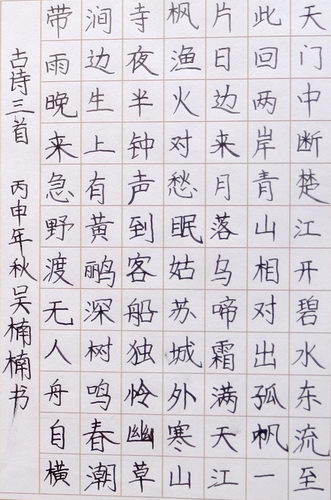 天门中断楚江开碧水东流至
此回两岸青山相对出孤帆一
片日边来月落乌啼霜满天江
枫渔火对愁眠姑苏城外寒山
寺夜半钟声到客船独怜幽草
涧边生上有黄鹂深树鸣春潮
带雨晚来急野渡无人舟自横
古诗三首 丙申年秋吴楠楠书